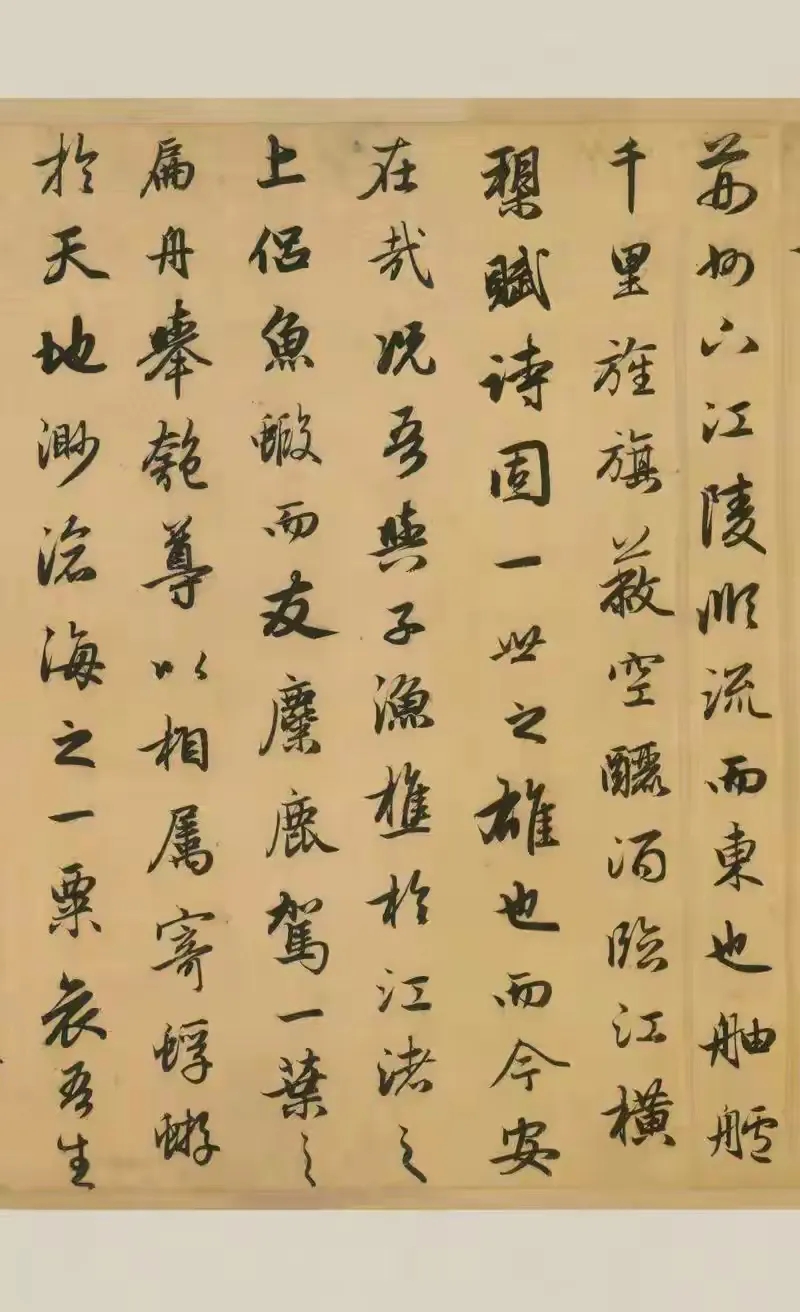 荊州下江陵順流而東也舳艫
千里旌旗蔽空釃酒臨江橫
槊賦詩固一世之雄也而今安
在哉况吾與子漁樵於江渚之
上侶魚蝦而友麋鹿駕一葉之
扁舟舉匏尊以相屬寄蜉蝣
於天地渺滄海之一粟哀吾生